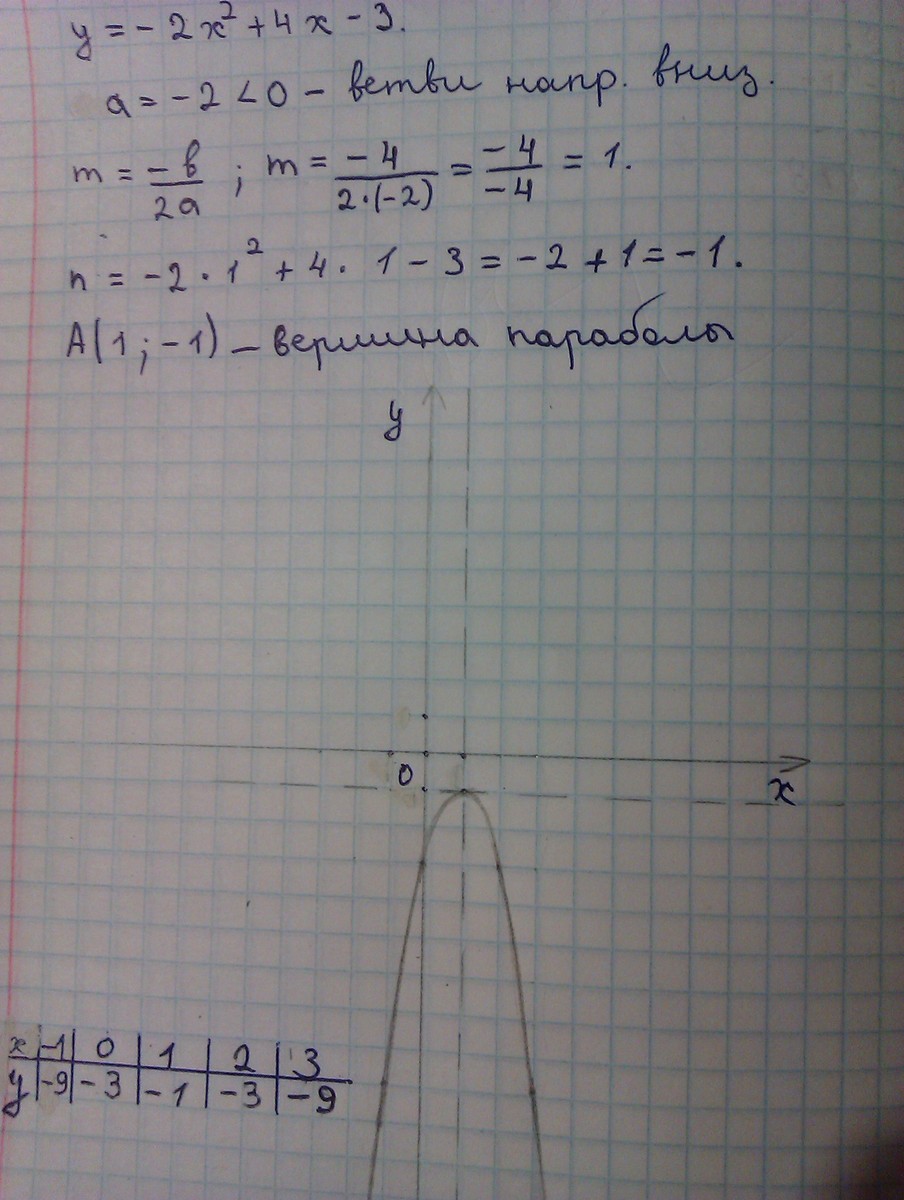 y = -2x² + 4x - 3.
a = -2 < 0 - ветви напр. вниз.
m = -b/2a ; m = -4/2·(-2) = -4/-4 = 1.
n = -2 · 1² + 4 · 1 - 3 = -2 + 1 = -1.
A(1; -1) - вершина параболы
y
0
x
x | -1 | 0 | 1 | 2 | 3
y | -9 | -3 | -1 | -3 | -9